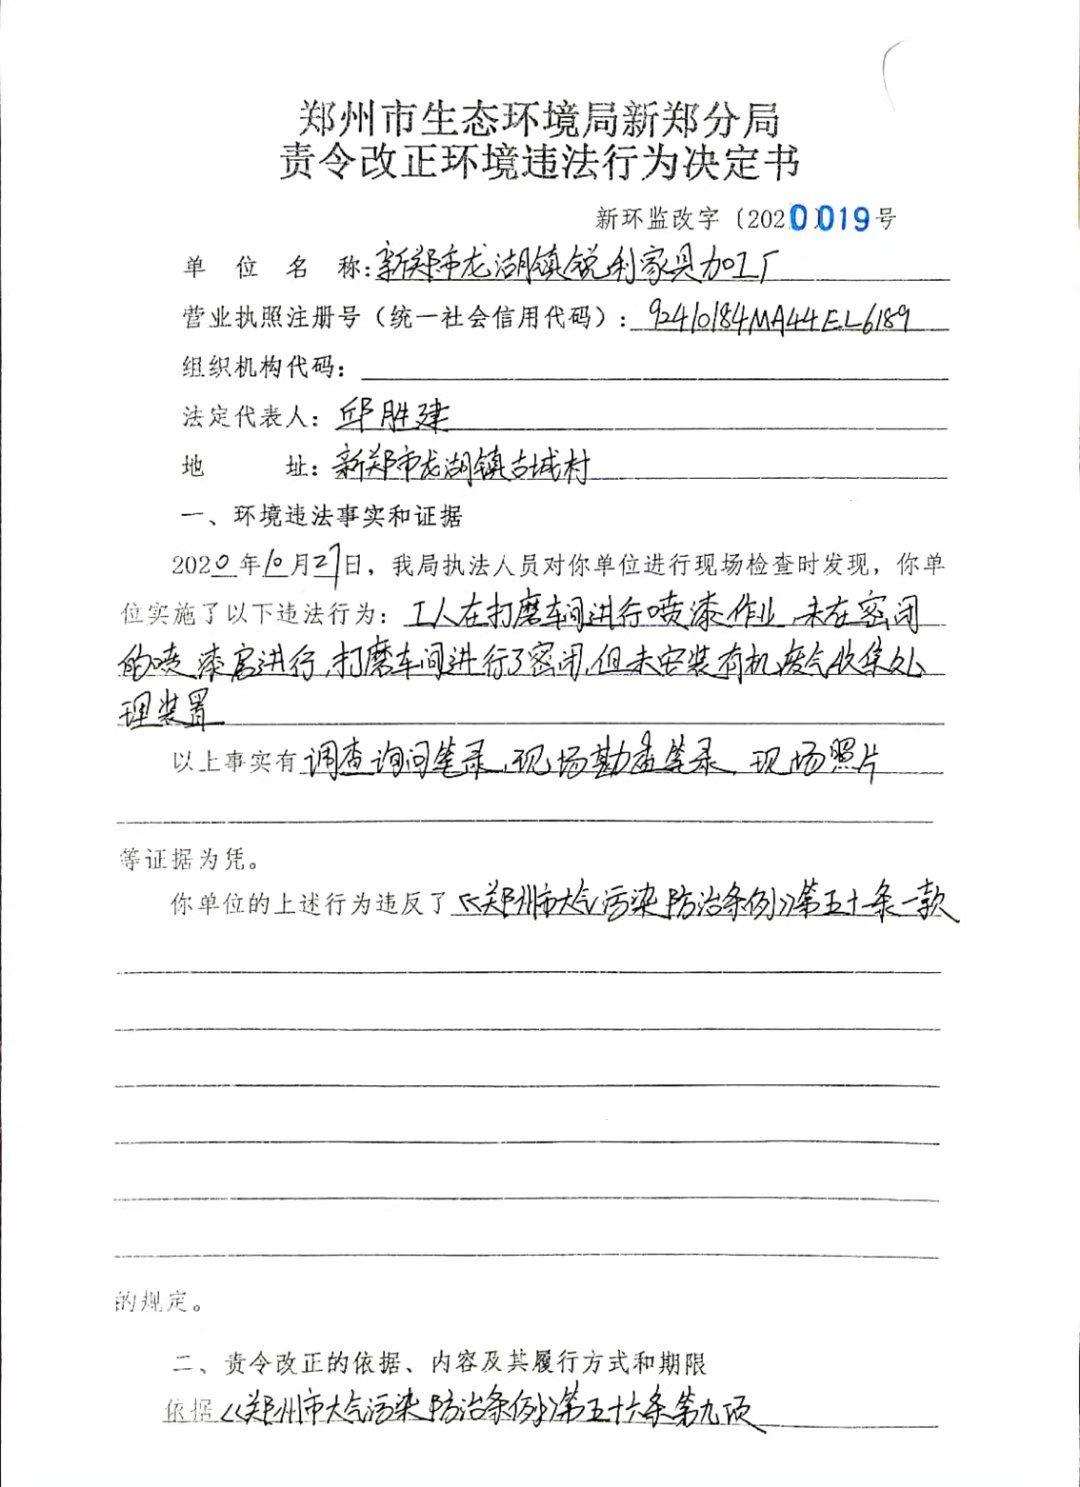 郑州市生态环境局新郑分局
责令改正环境违法行为决定书
新环监改字〔2020〕019号
单位名称:新郑市龙湖镇锐利家具加工厂
营业执照注册号（统一社会信用代码）:92410184MA44EL6189
组织机构代码:
法定代表人:邱胜建
地址:新郑市龙湖镇古城村
一、环境违法事实和证据
2020年10月27日，我局执法人员对你单位进行现场检查时发现，你单
位实施了以下违法行为:工人在打磨车间进行喷漆作业,未在密闭
的喷漆房进行,打磨车间进行了密闭,但未安装有机废气收集处
理装置
以上事实有调查询问笔录、现场勘查笔录、现场照片
等证据为凭。
你单位的上述行为违反了《郑州市大气污染防治条例》第五十条一款
的规定。
二、责令改正的依据、内容及其履行方式和期限
依据《郑州市大气污染防治条例》第五十六条第九项